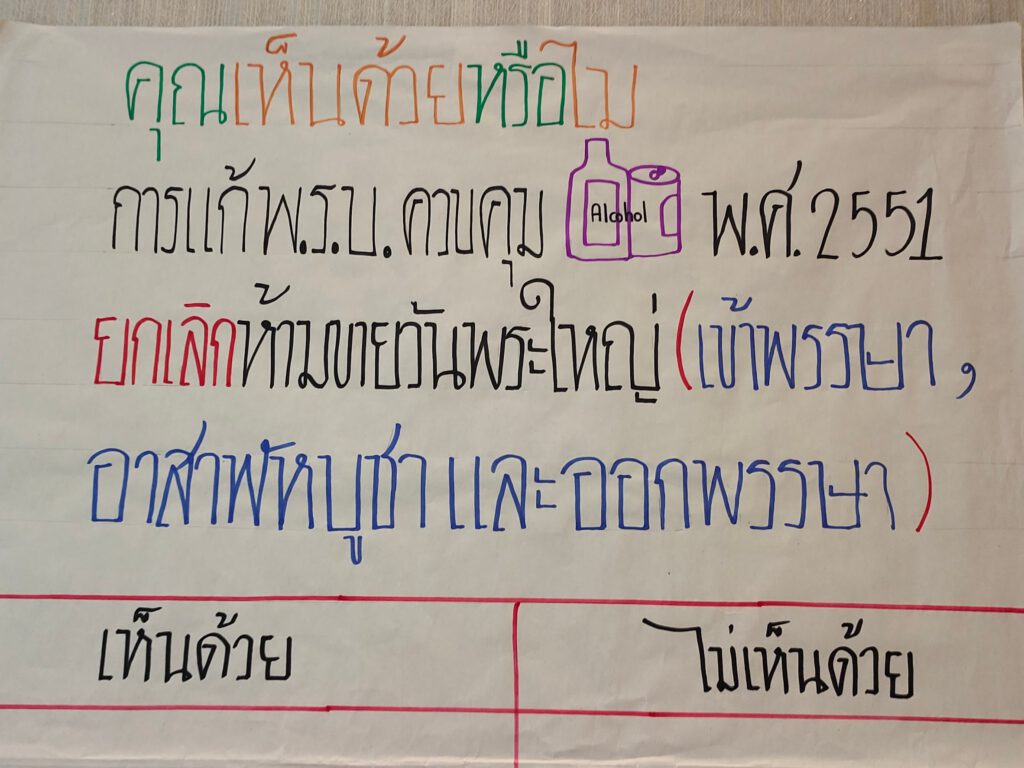 คุณเห็นด้วยหรือไม
การแก้ พ.ร.บ. ควบคุม Alcohol พ.ศ. 2551
ยกเลิกห้ามขายวันพระใหญ่ (เข้าพรรษา ,
อาสาฬหบูชา และ ออกพรรษา)
เห็นด้วย ไม่เห็นด้วย